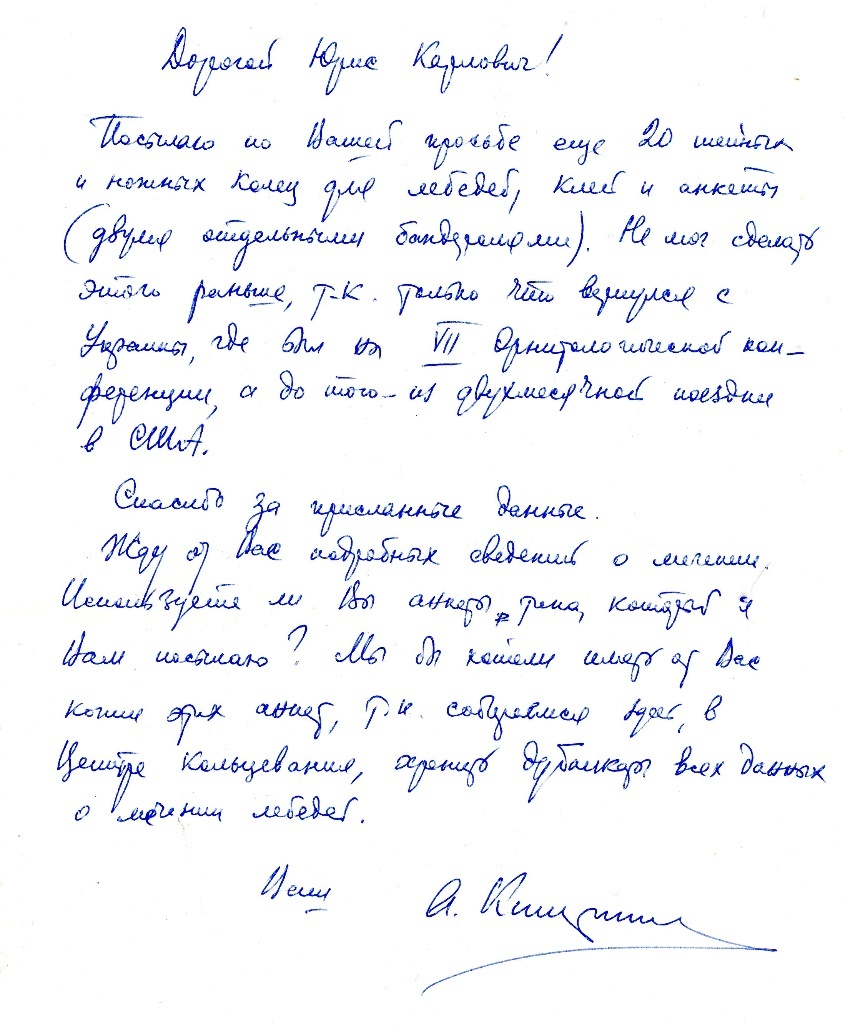 Дорогой Юрис Карлович!
Посылаю по Вашей просьбе еще 20 шейных
и ножных колец для лебедей, клей и анкеты
(двумя отдельными бандеролями). Не мог сделать
этого раньше, т.к. только что вернулся с
Украины, где был на VII Орнитологической кон-
ференции, а до того - из двухмесячной поездки
в США.
Спасибо за присланные данные.
Жду от Вас подробных сведений о мечении.
Используете ли Вы анкеты типа, который я
Вам посылаю? Мы бы хотели иметь от Вас
копии этих анкет, т.к. собираемся здесь, в
Центре кольцевания, хранить дубликаты всех данных
о мечении лебедей.
Ваш А.